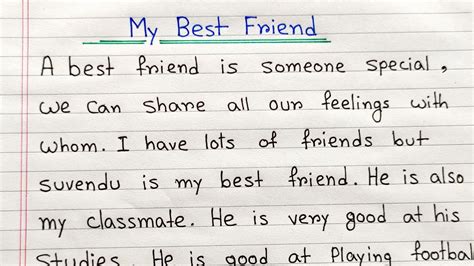 My Best Friend
A best friend is someone special,
we can share all our feelings with
whom. I have lots of friends but
suvendu is my best friend. He is also
my classmate. He is very good at his
studies. He is good at Playing footbal